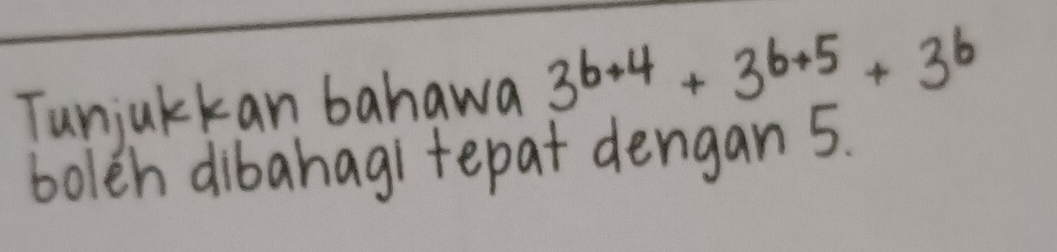 Tunjukkan bahawa 3^{b+4} + 3^{b+5} + 3^b
boleh dibahagi tepat dengan 5.